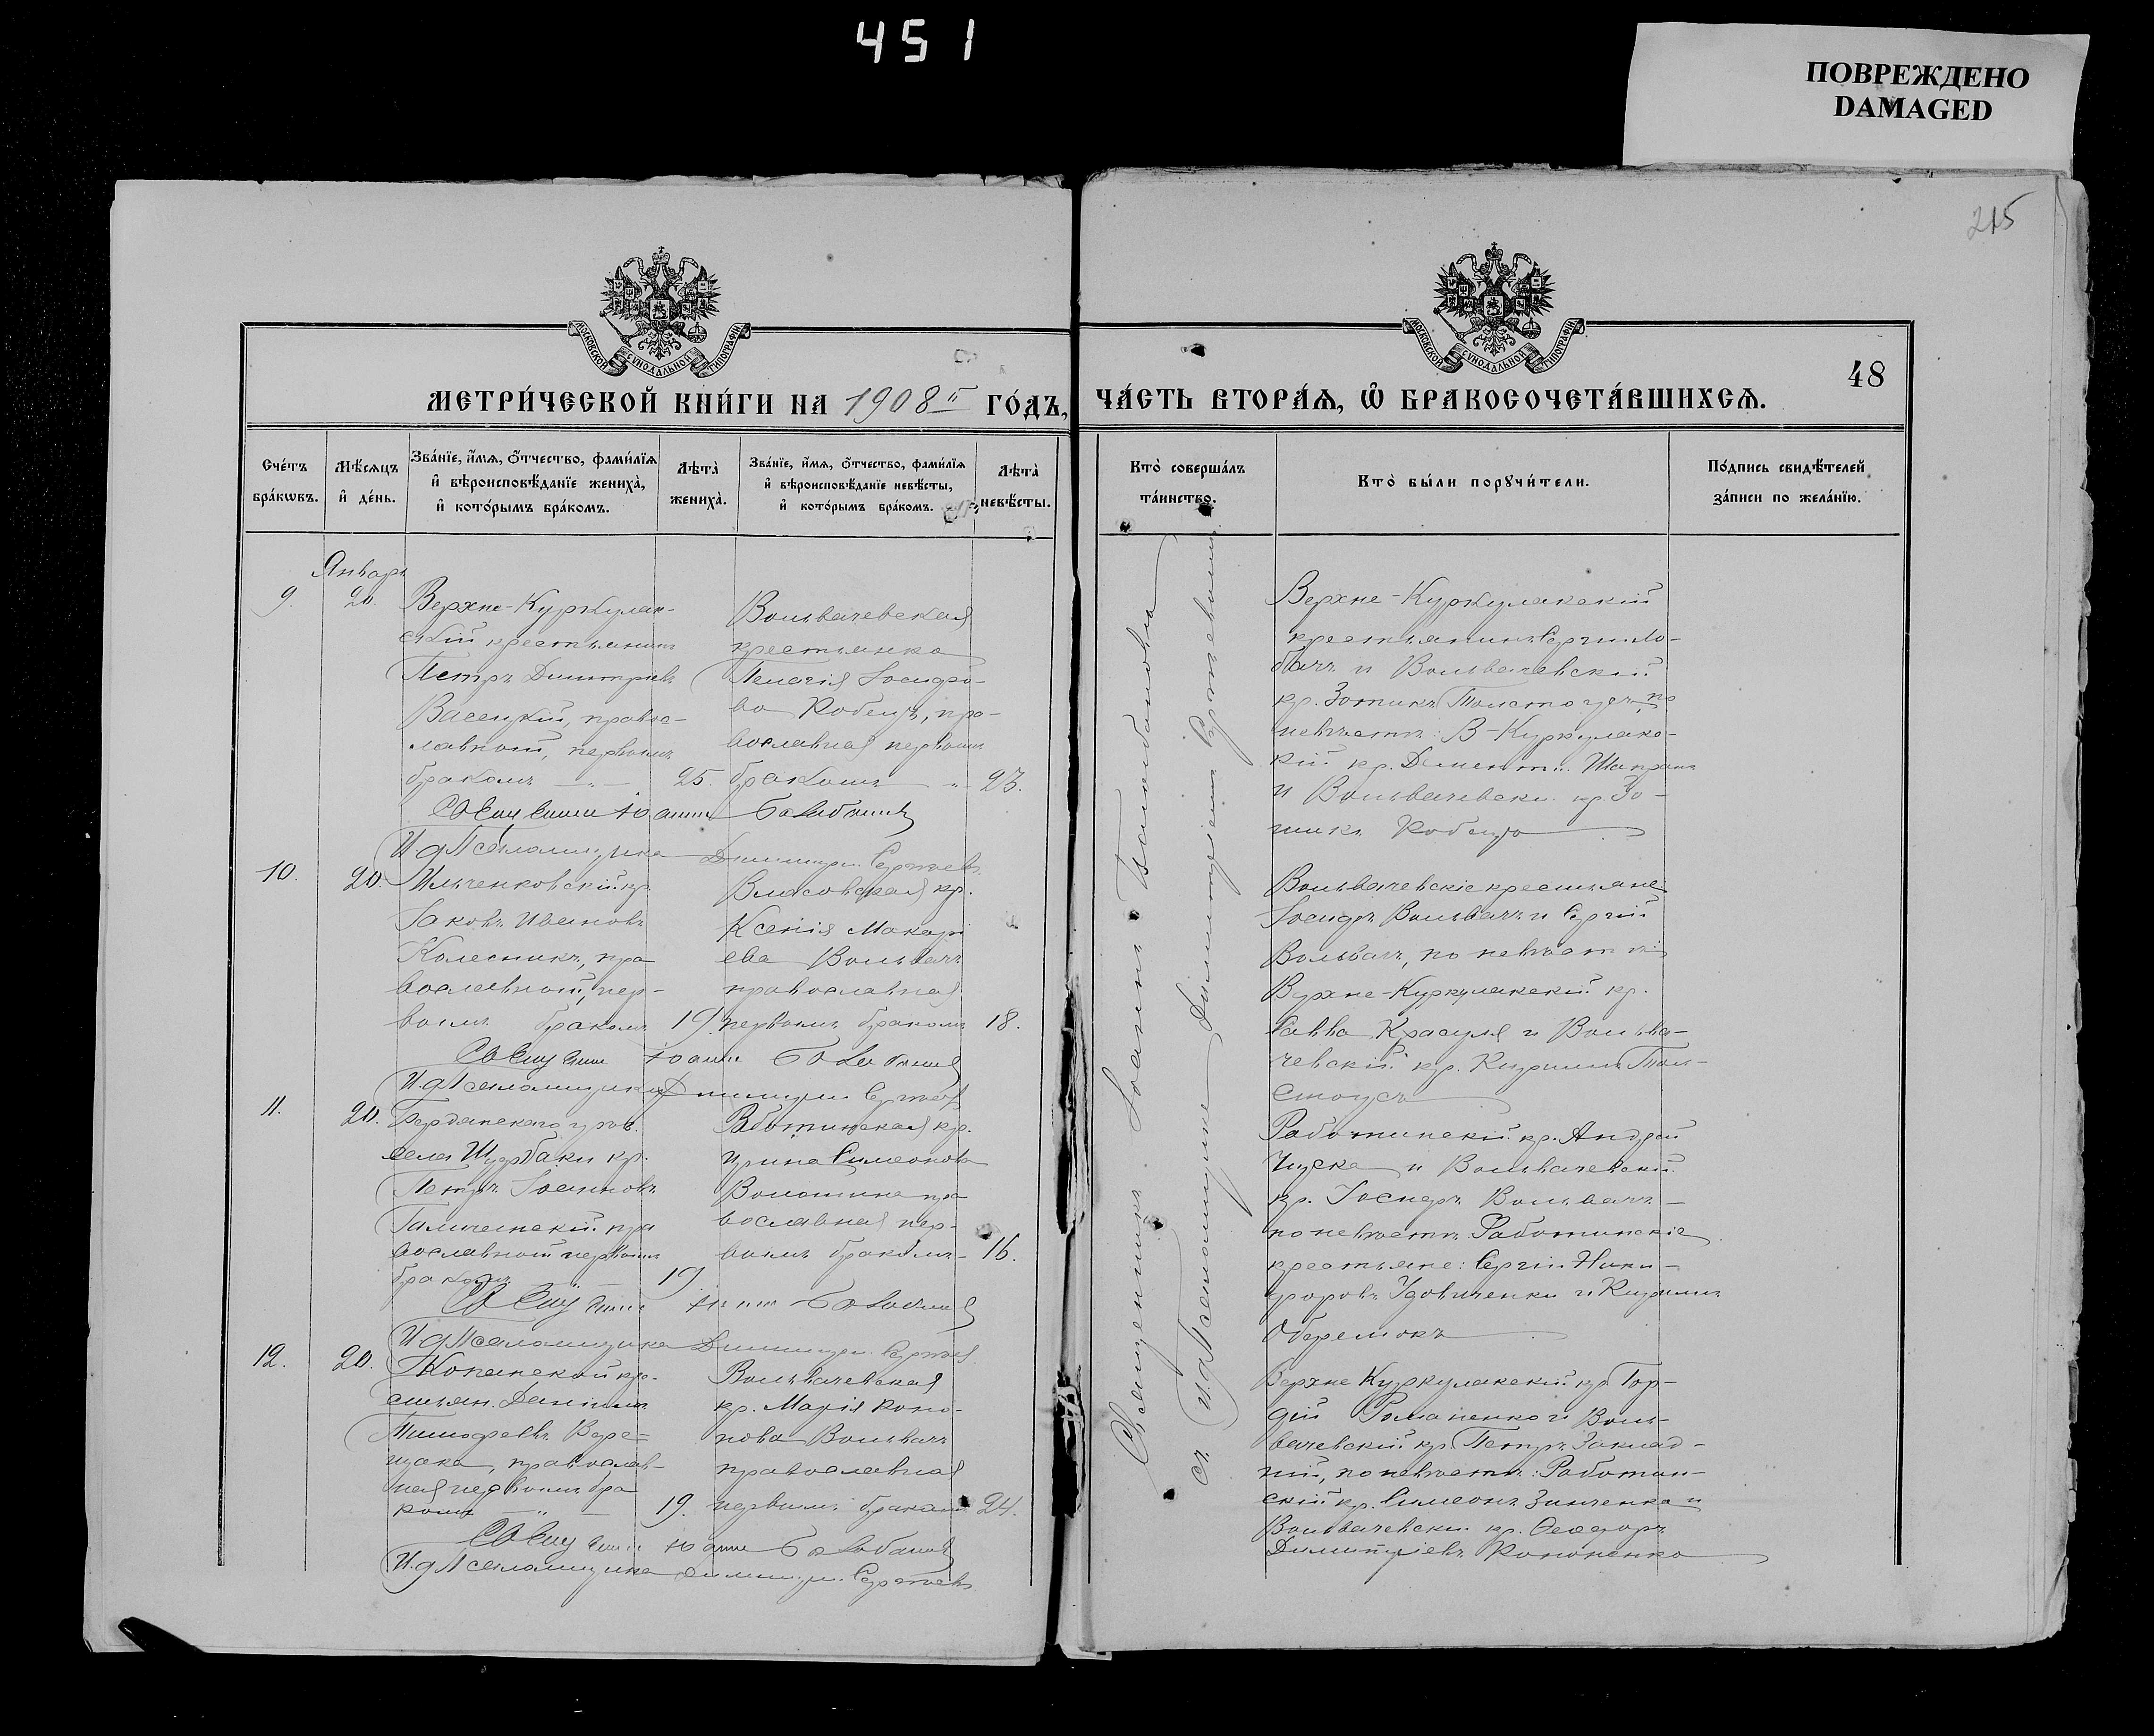 451
ПОВРЕЖДЕНО
DAMAGED
215
МОСКОВСКОЙ СѴНОДАЛЬНОЙ ТИПОГРАФІИ
МОСКОВСКОЙ СѴНОДАЛЬНОЙ ТИПОГРАФІИ
48
МЕТРИ́ЧЕСКОЙ КНИ́ГИ НА 1908й ГО́ДЪ,
ЧА́СТЬ ВТОРА́Ѧ, Ѡ҆ БРАКОСОЧЕТА́ВШИХСѦ.
Сче́тъ бра́кѡвъ.
Мѣ́сяцъ и҆ де́нь.
Зва́нїе, и҆́мѧ, ѻ҆́тчество, фами́лїѧ и҆ вѣроисповѣ́данїе жениха̀, и҆ кото́рымъ бра́комъ.
Лѣта̀ жениха̀.
Зва́нїе, и҆́мѧ, ѻ҆́тчество, фами́лїѧ и҆ вѣроисповѣ́данїе невѣ́сты, и҆ кото́рымъ бра́комъ.
Лѣта̀ невѣ́сты.
Кто̀ соверша́лъ та́инство.
Кто̀ бы́ли порꙋчи́тели.
По́дпись свидѣ́телей за́писи по жела́нїю.
Январь
9.
20.
Верхне-Куркулак-
скій крестьянинъ
Петръ Димитріевъ
Васецкій, правос-
лавный, первымъ
бракомъ
25.
Вольвачевская
крестьянка
Пелагія Іосифо-
ва Кобецъ, пра-
вославная первымъ
бракомъ
23.
Верхне-Куркулакскій
крестьянинъ Сергій Ло-
бачъ и Вольвачевскій
кр. Зотикъ Толстоусъ, по
невѣстѣ: В-Куркулакс-
кій кр. Дементій
и Вольвачевскій кр. Зо-
тикъ Кобецъ
Священникъ Іоаннъ Балабановъ
И.д. Псаломщика Димитрій Сергѣевъ
10.
20.
Ильченковскій кр.
Іаковъ Ивановъ
Колесникъ, пра
вославный, пер-
вымъ бракомъ
19.
Власовская кр.
Ксенія Макарі
ева Вольвачъ
православная
первымъ бракомъ
18.
Вольвачевскіе крестьяне
Іосифъ Вольвачъ и Сергій
Вольвачъ, по невѣстѣ
Верхне-Куркулакскій кр.
Савва Красуля и Вольва-
чевскій кр. Кириллъ Тол-
стоусъ
Священникъ Іоаннъ Балабановъ
И.д. Псаломщика Димитрій Сергѣевъ
11.
20.
Бердянскаго уѣзв.
села Шурбаки кр.
Петръ Іоанновъ
пра
вославный первымъ
бракомъ
19
кр.
Ирина Симеонова
Волошина пра
вославная пер-
вымъ бракомъ
16.
Работинскій кр. Андрей
и Вольвачевскій
кр. Іосифъ Вольвачъ
по невѣстѣ Работинскіе
крестьяне: Сергій Ники-
форовъ Удовиченко и Кириллъ
Оберемокъ
Священникъ Іоаннъ Балабановъ
И.д. Псаломщика Димитрій Сергѣевъ
12.
20.
Копанской кре-
стьян. Даніилъ
Тимофеевъ Вере-
щака, православ-
ная первымъ бра
комъ
19.
Вольвачевская
кр. Марія Коно-
нова Вольвачъ
православная
первымъ бракомъ
24.
Верхне Куркулакскій кр. Гор-
дій Романенко и Воль-
вачевскій кр. Петръ Заклад-
ній, по невѣстѣ: Работин-
скій кр. Симеонъ Зинченко и
Вольвачевскій кр. Ѳеодоръ
Димитріевъ Кононенко
Священникъ Іоаннъ Балабановъ
И.д. Псаломщика Димитрій Сергѣевъ
Священникъ Іоаннъ Балабановъ
съ И.д. Псаломщика Димитріемъ Сергѣевымъ